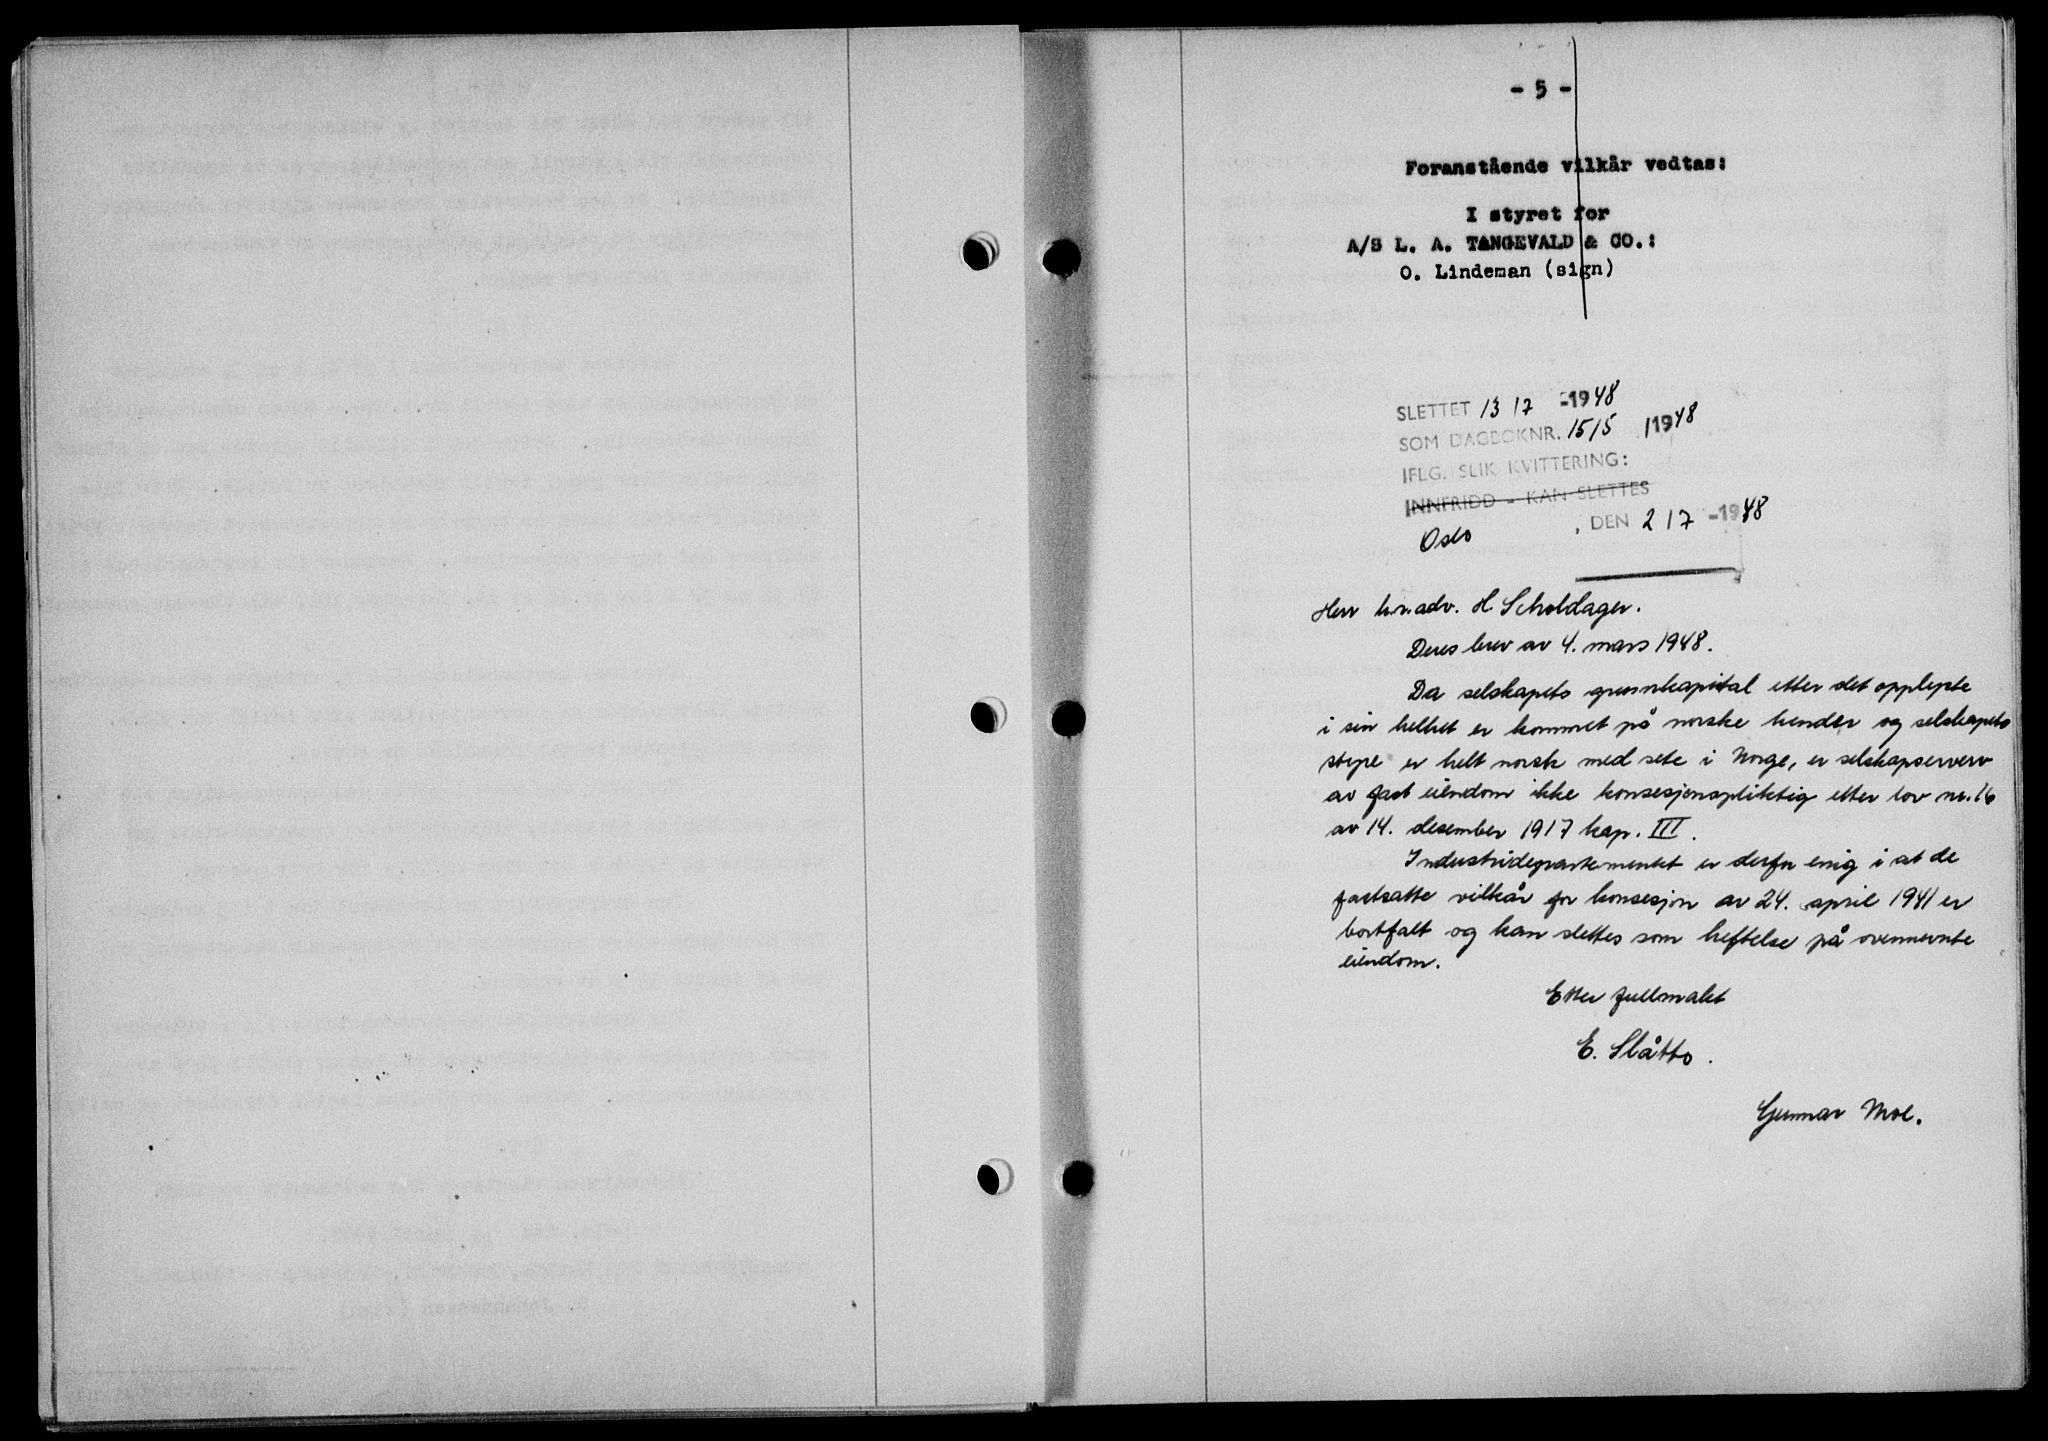 - 5 -
Foranstående vilkår vedtas:
I styret for
A/S L. A. TANGEVALD & CO.:
O. Lindeman (sign)
SLETTET 13 17 -1948
SOM DAGBOKNR. 1515 / 1948
IFLG. SLIK KVITTERING:
INNFRIDD - KAN SLETTES
Oslo , DEN 2 17 -1948
Herr h.r.adv. H. Scholdager.
Deres brev av 4. mars 1948.
Da selskapets grunnkapital etter det opplyste
i sin helhet er kommet på norske hender og selskapets
styre er helt norsk med sete i Norge, er selskapserverv
av fast eiendom ikke konsesjonspliktig etter lov nr. 16
av 14. desember 1917 kap. III.
Industridepartementet er derfor enig i at de
fastsatte vilkår for konsesjon av 24. april 1941 er
bortfalt og kan slettes som heftelse på ovennevnte
eiendom.
Etter fullmakt
E. Slåtto.
Gunnar Moe.